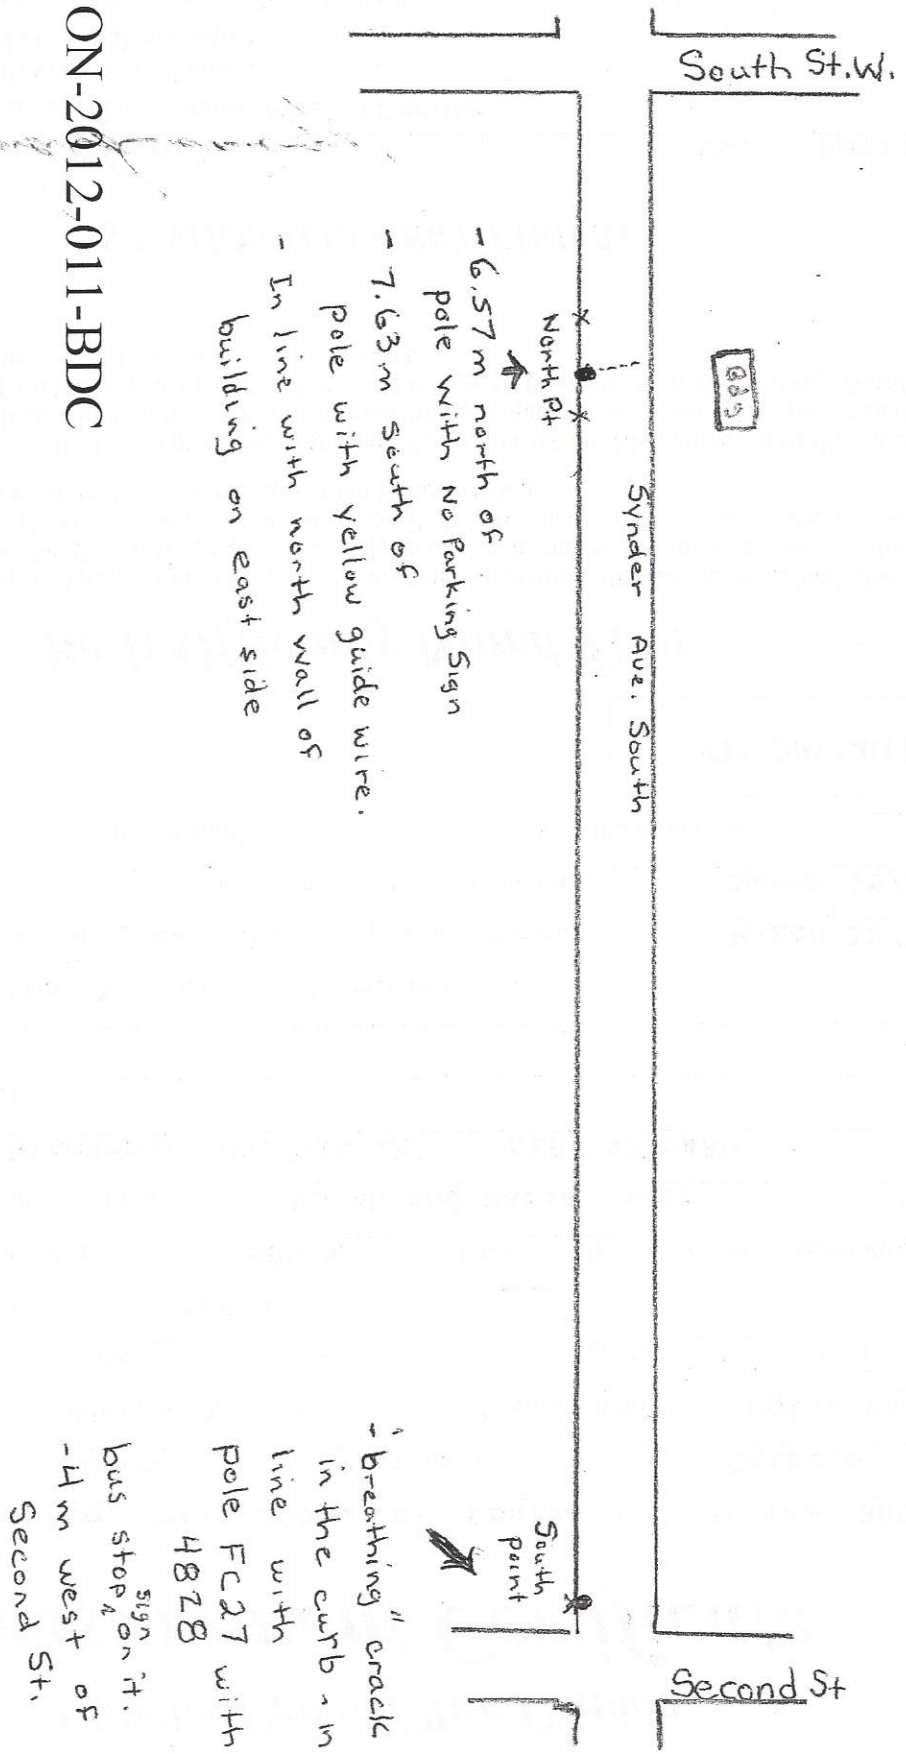 South St.W.
ON-2012-011-BDC
Bdg
North Pt
- 6.57m north of
pole with No Parking Sign
- 7.63m south of
pole with yellow guide wire.
- In line with north wall of
building on east side
Synder Ave. South
South
point
- "breathing" crack
in the curb - in
line with
pole FC27 with
4828
bus stop sign on it.
- 4m west of
Second St.
Second St